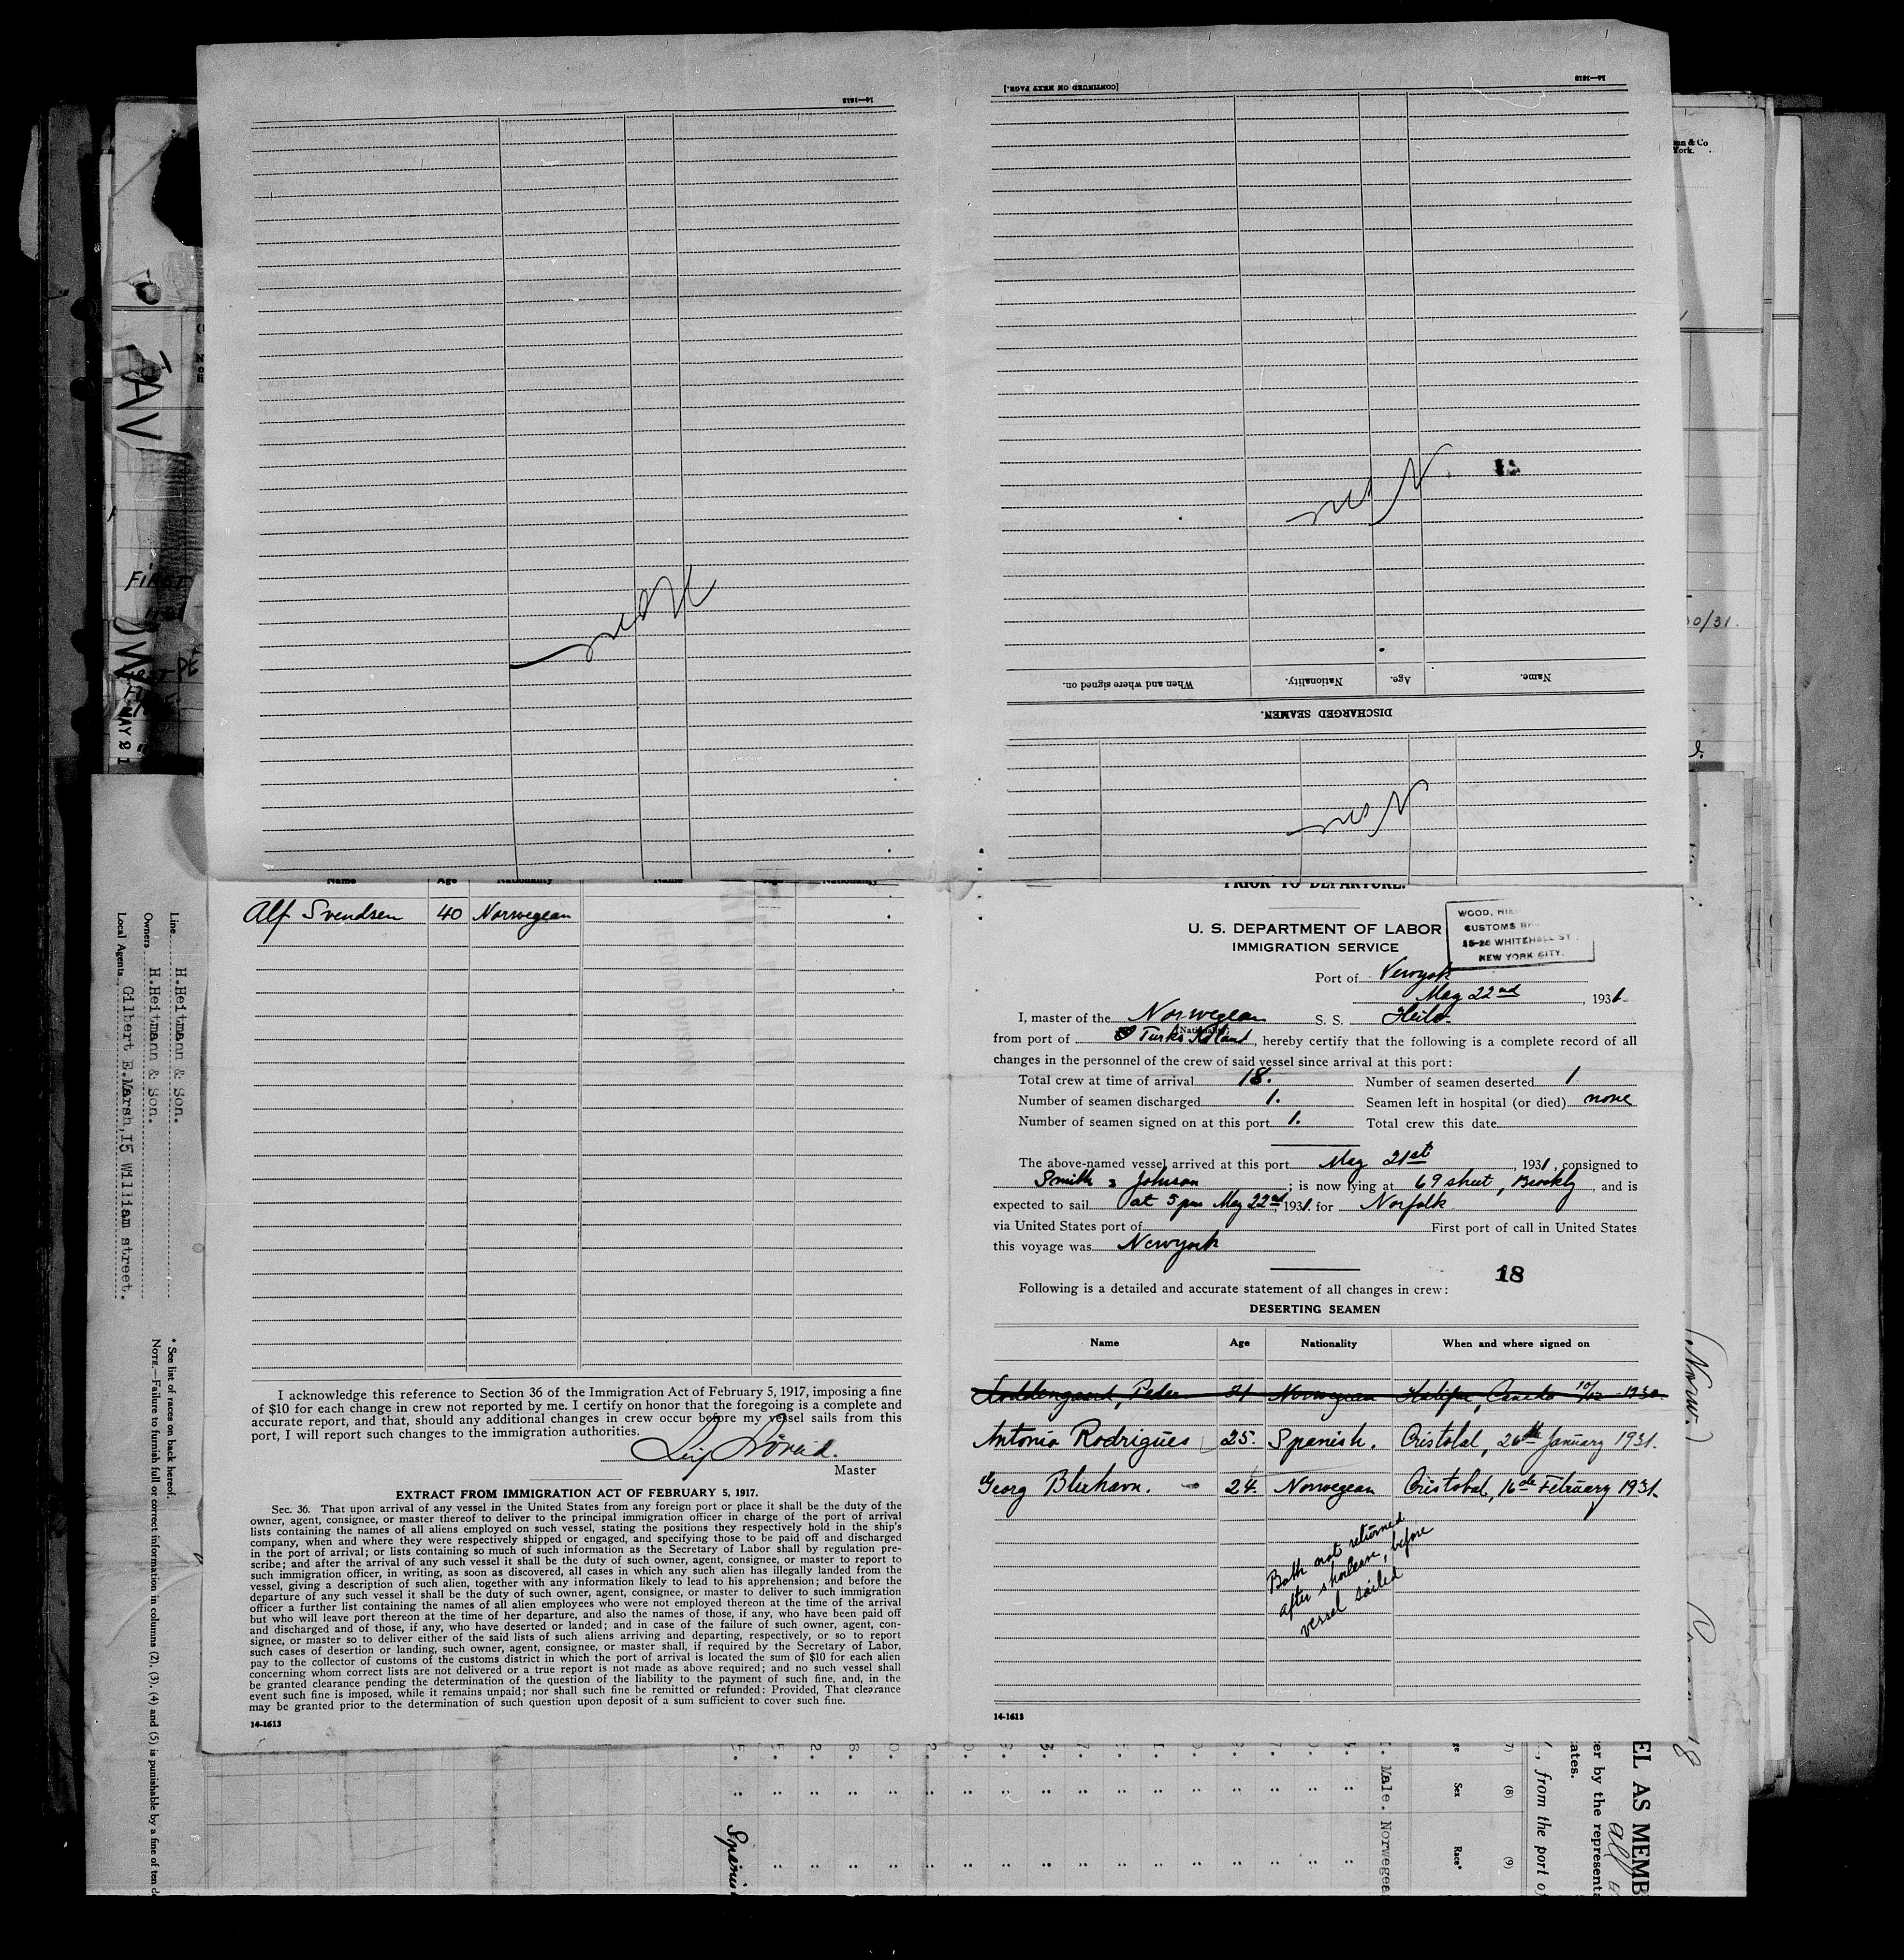 14—1613
[CONTINUED ON NEXT PAGE.]
14—1613
None
None
When and where signed on.
Nationality.
Age.
Name.
DISCHARGED SEAMEN.
None
Name Age Nationality Name Age Nationality
Alf Svendsen 40 Norwegean
I acknowledge this reference to Section 36 of the Immigration Act of February 5, 1917, imposing a fine
of $10 for each change in crew not reported by me. I certify on honor that the foregoing is a complete and
accurate report, and that, should any additional changes in crew occur before my vessel sails from this
port, I will report such changes to the immigration authorities.
Master
EXTRACT FROM IMMIGRATION ACT OF FEBRUARY 5, 1917.
Sec. 36. That upon arrival of any vessel in the United States from any foreign port or place it shall be the duty of the
owner, agent, consignee, or master thereof to deliver to the principal immigration officer in charge of the port of arrival
lists containing the names of all aliens employed on such vessel, stating the positions they respectively hold in the ship's
company, when and where they were respectively shipped or engaged, and specifying those to be paid off and discharged
in the port of arrival; or lists containing so much of such information as the Secretary of Labor shall by regulation pre-
scribe; and after the arrival of any such vessel it shall be the duty of such owner, agent, consignee, or master to report to
such immigration officer, in writing, as soon as discovered, all cases in which any such alien has illegally landed from the
vessel, giving a description of such alien, together with any information likely to lead to his apprehension; and before the
departure of any such vessel it shall be the duty of such owner, agent, consignee, or master to deliver to such immigration
officer a further list containing the names of all alien employees who were not employed thereon at the time of the arrival
but who will leave port thereon at the time of her departure, and also the names of those, if any, who have been paid off
and discharged and of those, if any, who have deserted or landed; and in case of the failure of such owner, agent, con-
signee, or master so to deliver either of the said lists of such aliens arriving and departing, respectively, or so to report
such cases of desertion or landing, such owner, agent, consignee, or master shall, if required by the Secretary of Labor,
pay to the collector of customs of the customs district in which the port of arrival is located the sum of $10 for each alien
concerning whom correct lists are not delivered or a true report is not made as above required; and no such vessel shall
be granted clearance pending the determination of the question of the liability to the payment of such fine, and, in the
event such fine is imposed, while it remains unpaid; nor shall such fine be remitted or refunded: Provided, That clearance
may be granted prior to the determination of such question upon deposit of a sum sufficient to cover such fine.
14-1613
PRIOR TO DEPARTURE.
U. S. DEPARTMENT OF LABOR
IMMIGRATION SERVICE
WOOD,
CUSTOMS
WHITEHALL ST
NEW YORK CITY.
Port of Newyork
May 22nd, 1931
I, master of the Norwegean S. S. Heilo
(Nationality)
from port of Turks Island, hereby certify that the following is a complete record of all
changes in the personnel of the crew of said vessel since arrival at this port:
Total crew at time of arrival 18. Number of seamen deserted 1
Number of seamen discharged 1. Seamen left in hospital (or died) none
Number of seamen signed on at this port 1. Total crew this date
The above-named vessel arrived at this port May 21st, 1931, consigned to
Smith & Johnson; is now lying at 69 street, Brookly, and is
expected to sail at 5 pm May 22nd, 1931. for Norfolk
via United States port of First port of call in United States
this voyage was Newyork
18
Following is a detailed and accurate statement of all changes in crew:
DESERTING SEAMEN
Name Age Nationality When and where signed on
Peder 21 Norwegean Halifax, Canada 10/12 1930.
Antonio Rodrigues 25. Spanish. Cristobal, 26th January 1931.
Georg Blixhavn. 24. Norwegean Cristobal, 16de February 1931.
Both not returned
after shoreleave, before
vessel sailed
14-1613
Line H.Heitmann & Son.
Owners H.Heitmann & Son.
Local Agents Gilbert E.Marsh, 15 William street.
* See list of races on back hereof.
NOTE.—Failure to furnish full or correct information in columns (2), (3), (4) and (5) is punishable by a fine of ten d
MAY 21
FIRST
nn & Co
York.
0/31.
(Norw.)
18
EL AS MEMB
er by the representa
ates.
, from the port of
(7) (8) (9)
ge Sex Race*
Male. Norwegea
Spanis